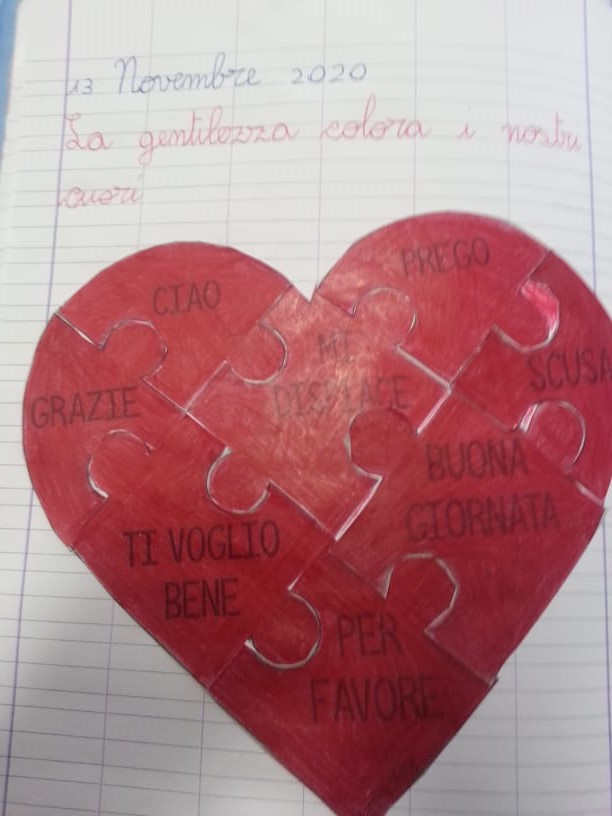 13 Novembre 2020
La gentilezza colora i nostri
cuori
CIAO
PREGO
MI
DISPIACE
SCUSA
GRAZIE
BUONA
GIORNATA
TI VOGLIO
BENE
PER
FAVORE